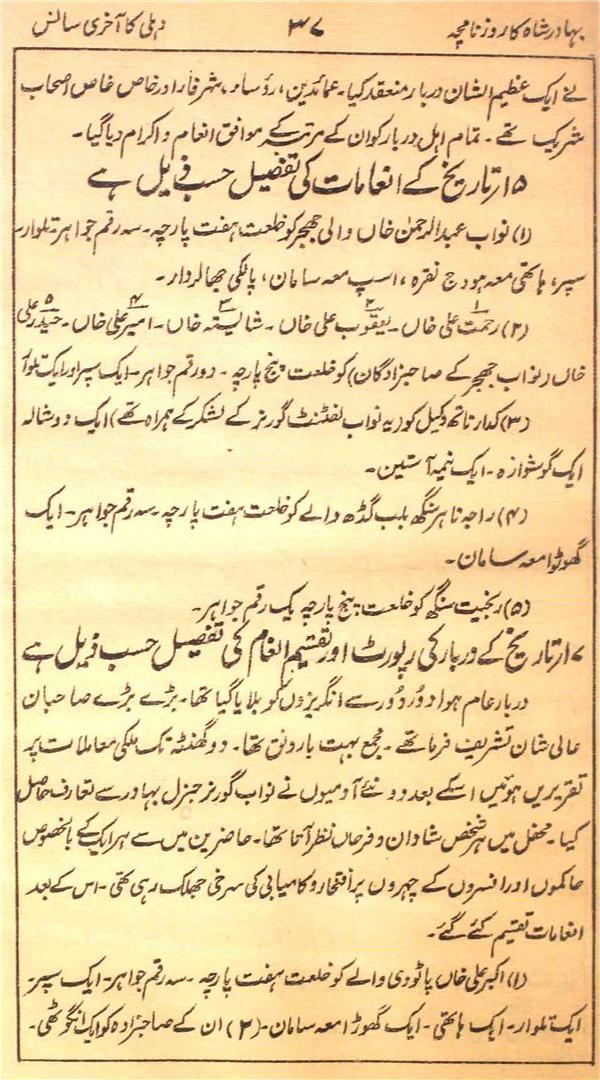 بہادر شاہ کا روزنامچہ ۳۷ دہلی کا آخری سانس
نے ایک عظیم الشان دربار منعقد کیا۔ عمائدین، رؤساء، شرفاء اور خاص خاص اصحاب
شریک تھے۔ تمام اہل دربار کو ان کے مرتبہ کے موافق انعام و اکرام دیا گیا۔
۱۵ تاریخ کے انعامات کی تفصیل حسب ذیل ہے
(۱) نواب عبدالرحمٰن خاں والی جھجر کو خلعت ہفت پارچہ۔ سہ رقم جواہر۔ تلوار۔
سپر، ہاتھی معہ ہودج نقرہ، اسپ معہ سامان، پالکی جھالردار۔
(۲) رحمت علی خاں۱۔ یعقوب علی خاں۲۔ شایستہ خاں۳۔ امیر علی خاں۴۔ حیدر علی۵
خاں (نواب جھجر کے صاحبزادگان) کو خلعت پنج پارچہ۔ دو رقم جواہر۔ ایک سپر اور ایک تلوار
(۳) کدار ناتھ وکیل کو (یہ نواب لفٹنٹ گورنر کے لشکر کے ہمراہ تھے) ایک دوشالہ
ایک گوشوارہ۔ ایک نیمہ آستین۔
(۴) راجہ ناہر سنگھ بلب گڈھ والے کو خلعت ہفت پارچہ۔ سہ رقم جواہر۔ ایک
گھوڑا معہ سامان۔
(۵) رنجیت سنگھ کو خلعت پنج پارچہ یک رقم جواہر۔
۱۷ تاریخ کے دربار کی رپورٹ اور تقسیم انعام کی تفصیل حسب ذیل ہے
دربار عام ہوا دور دور سے انگریزوں کو بلایا گیا تھا۔ بڑے بڑے صاحبان
عالی شان تشریف فرما تھے۔ مجمع بہت بارونق تھا۔ دو گھنٹہ تک ملکی معاملات پر
تقریریں ہوئیں اسکے بعد دو نئے آدمیوں نے نواب گورنر جنرل بہادر سے تعارف حاصل
کیا۔ محفل میں ہر شخص شاداں و فرحاں نظر آتا تھا۔ حاضرین میں سے ہر ایک کے بالخصوص
حاکموں اور افسروں کے چہروں پر افتخار و کامیابی کی سرخی جھلک رہی تھی۔ اس کے بعد
انعامات تقسیم کئے گئے۔
(۱) اکبر علی خاں پاٹودی والے کو خلعت ہفت پارچہ۔ سہ رقم جواہر۔ ایک سپر۔
ایک تلوار۔ ایک ہاتھی۔ ایک گھوڑا معہ سامان۔ (۲) ان کے صاحبزادہ کو ایک انگوٹھی۔